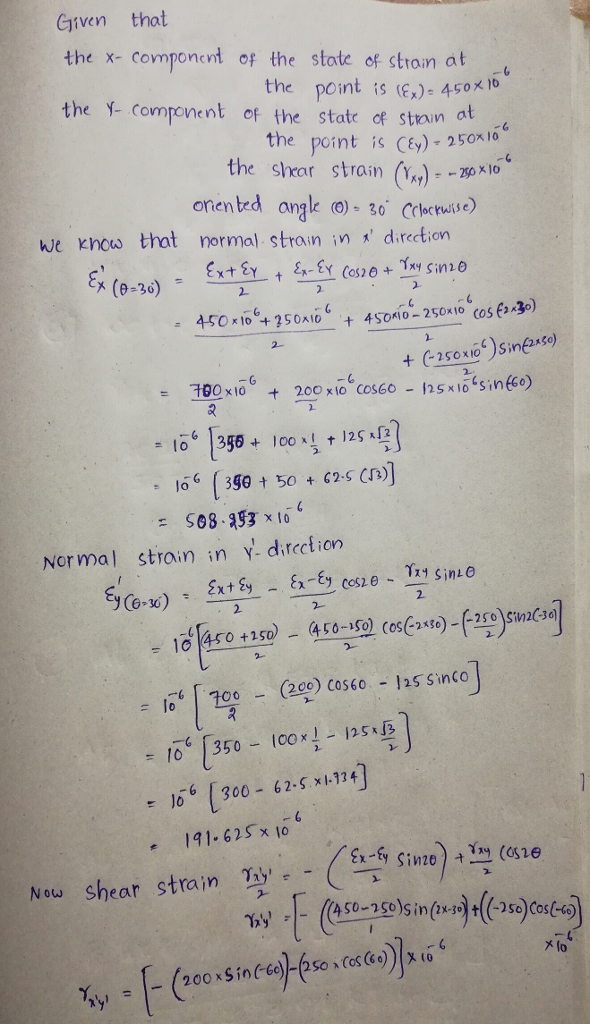 Given that
the x- component of the state of strain at
the point is (εx) = 450×10⁻⁶
the Y- component of the state of strain at
the point is (εy) = 250×10⁻⁶
the shear strain (γxy) = -250×10⁻⁶
oriented angle (θ) = 30° (clockwise)
we know that normal strain in x' direction
εx' (θ=30) = (εx+εy)/2 + (εx-εy)/2 cos2θ + γxy/2 sin2θ
= (450×10⁻⁶+250×10⁻⁶)/2 + (450×10⁻⁶-250×10⁻⁶)/2 cos(-2×30)
+ (-250×10⁻⁶)/2 sin(-2×30)
= 700×10⁻⁶/2 + 200×10⁻⁶/2 cos60 - 125×10⁻⁶ sin(-60)
= 10⁻⁶ [350 + 100×1/2 + 125×√3/2]
= 10⁻⁶ [350 + 50 + 62.5 (√3)]
= 508.253×10⁻⁶
Normal strain in Y'- direction
εy' (θ=30) = (εx+εy)/2 - (εx-εy)/2 cos2θ - γxy/2 sin2θ
= 10⁻⁶ [(450+250)/2 - (450-250)/2 cos(-2×30) - (-250/2) sin2(-30)]
= 10⁻⁶ [700/2 - (200)/2 cos60 - 125 sin60]
= 10⁻⁶ [350 - 100×1/2 - 125×√3/2]
= 10⁻⁶ [300 - 62.5×1.734]
= 191.625×10⁻⁶
Now shear strain γx'y'/2 = - ((εx-εy)/2 sin2θ) + γxy/2 cos2θ
γx'y' = [- ((450-250)/1 sin(2×-30) + ((-250) cos(-60)] ×10⁻⁶
γx'y' = [- (200×sin(-60)) - (250×cos(60))] ×10⁻⁶